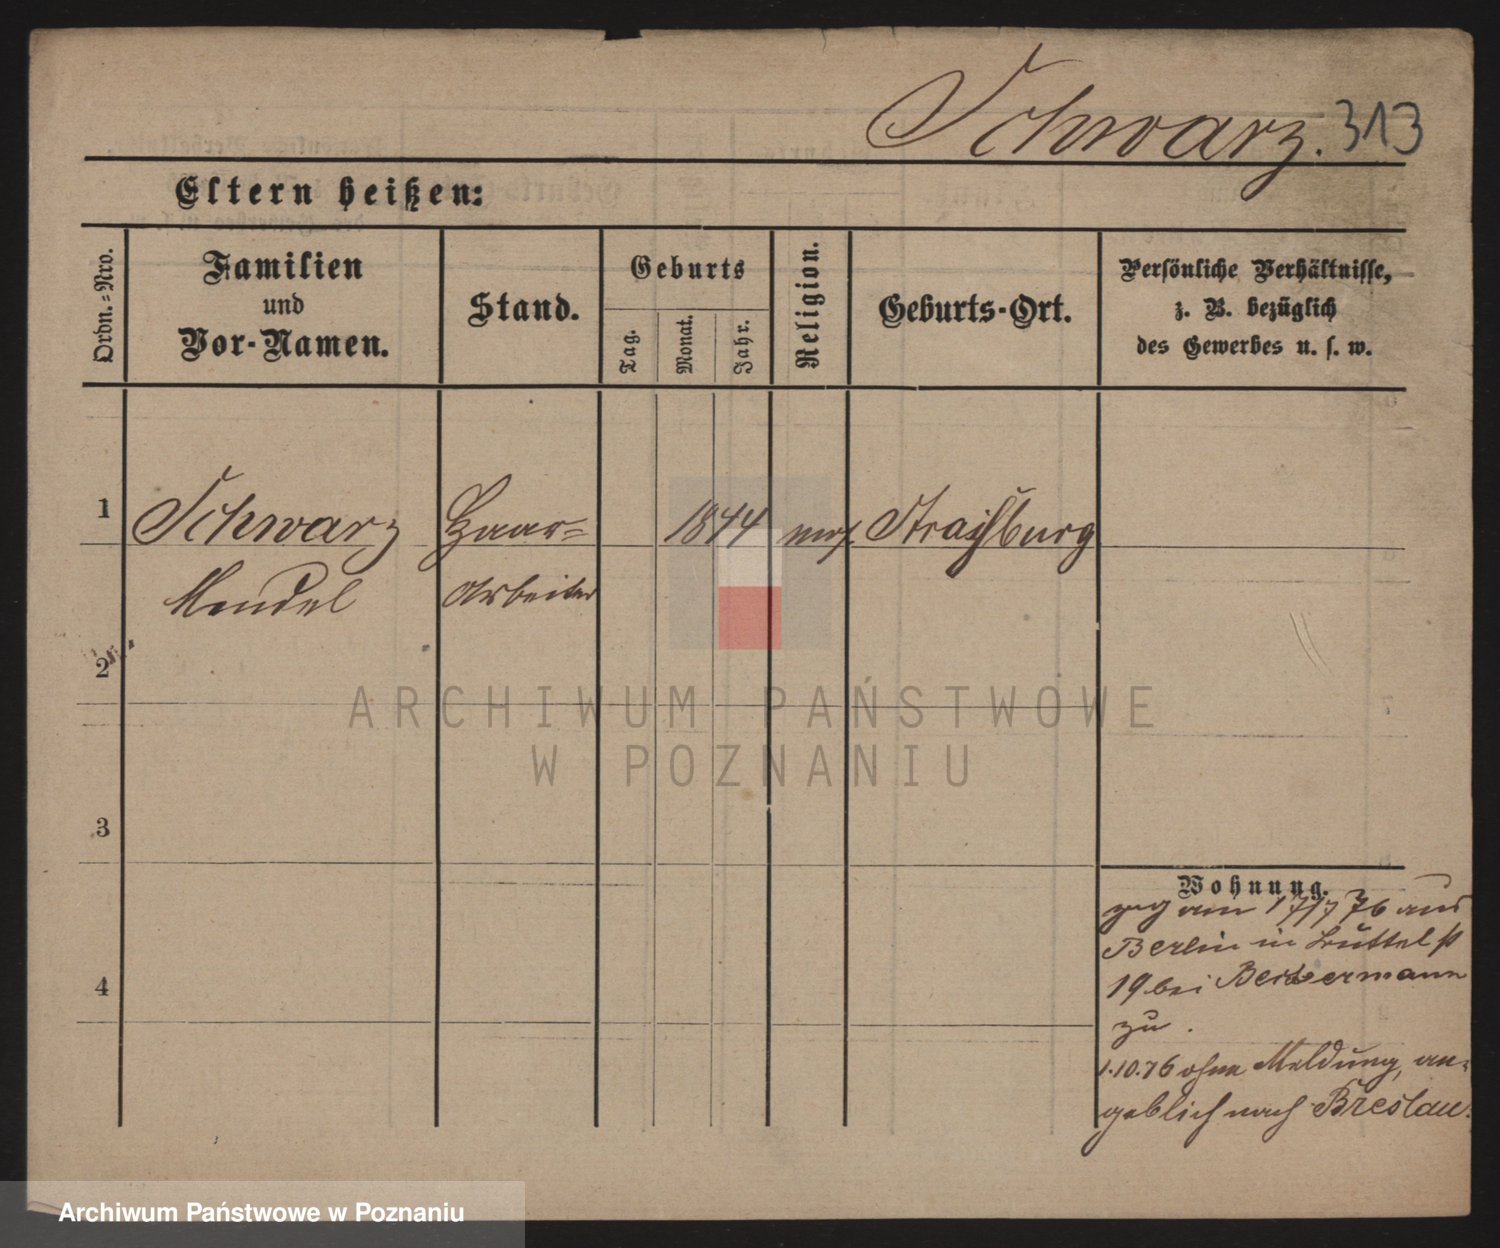 Schwarz. 313
Eltern heißen:
Ordn.=Nro.
Familien
und
Vor-Namen.
Stand.
Geburts
Tag.
Monat.
Jahr.
Religion.
Geburts-Ort.
Persönliche Verhältnisse,
z. B. bezüglich
des Gewerbes u. s. w.
1
Schwarz
Mendel
Haar=
Arbeiter
1844
mos.
Straißburg
2
3
4
Wohnung.
zog am 17/7 76 aus
Berlin in Büttel st
19 bei
zu.
1.10.76 ohne Meldung, an=
geblich nach Breslau.
ARCHIWUM PAŃSTWOWE
W POZNANIU
Archiwum Państwowe w Poznaniu